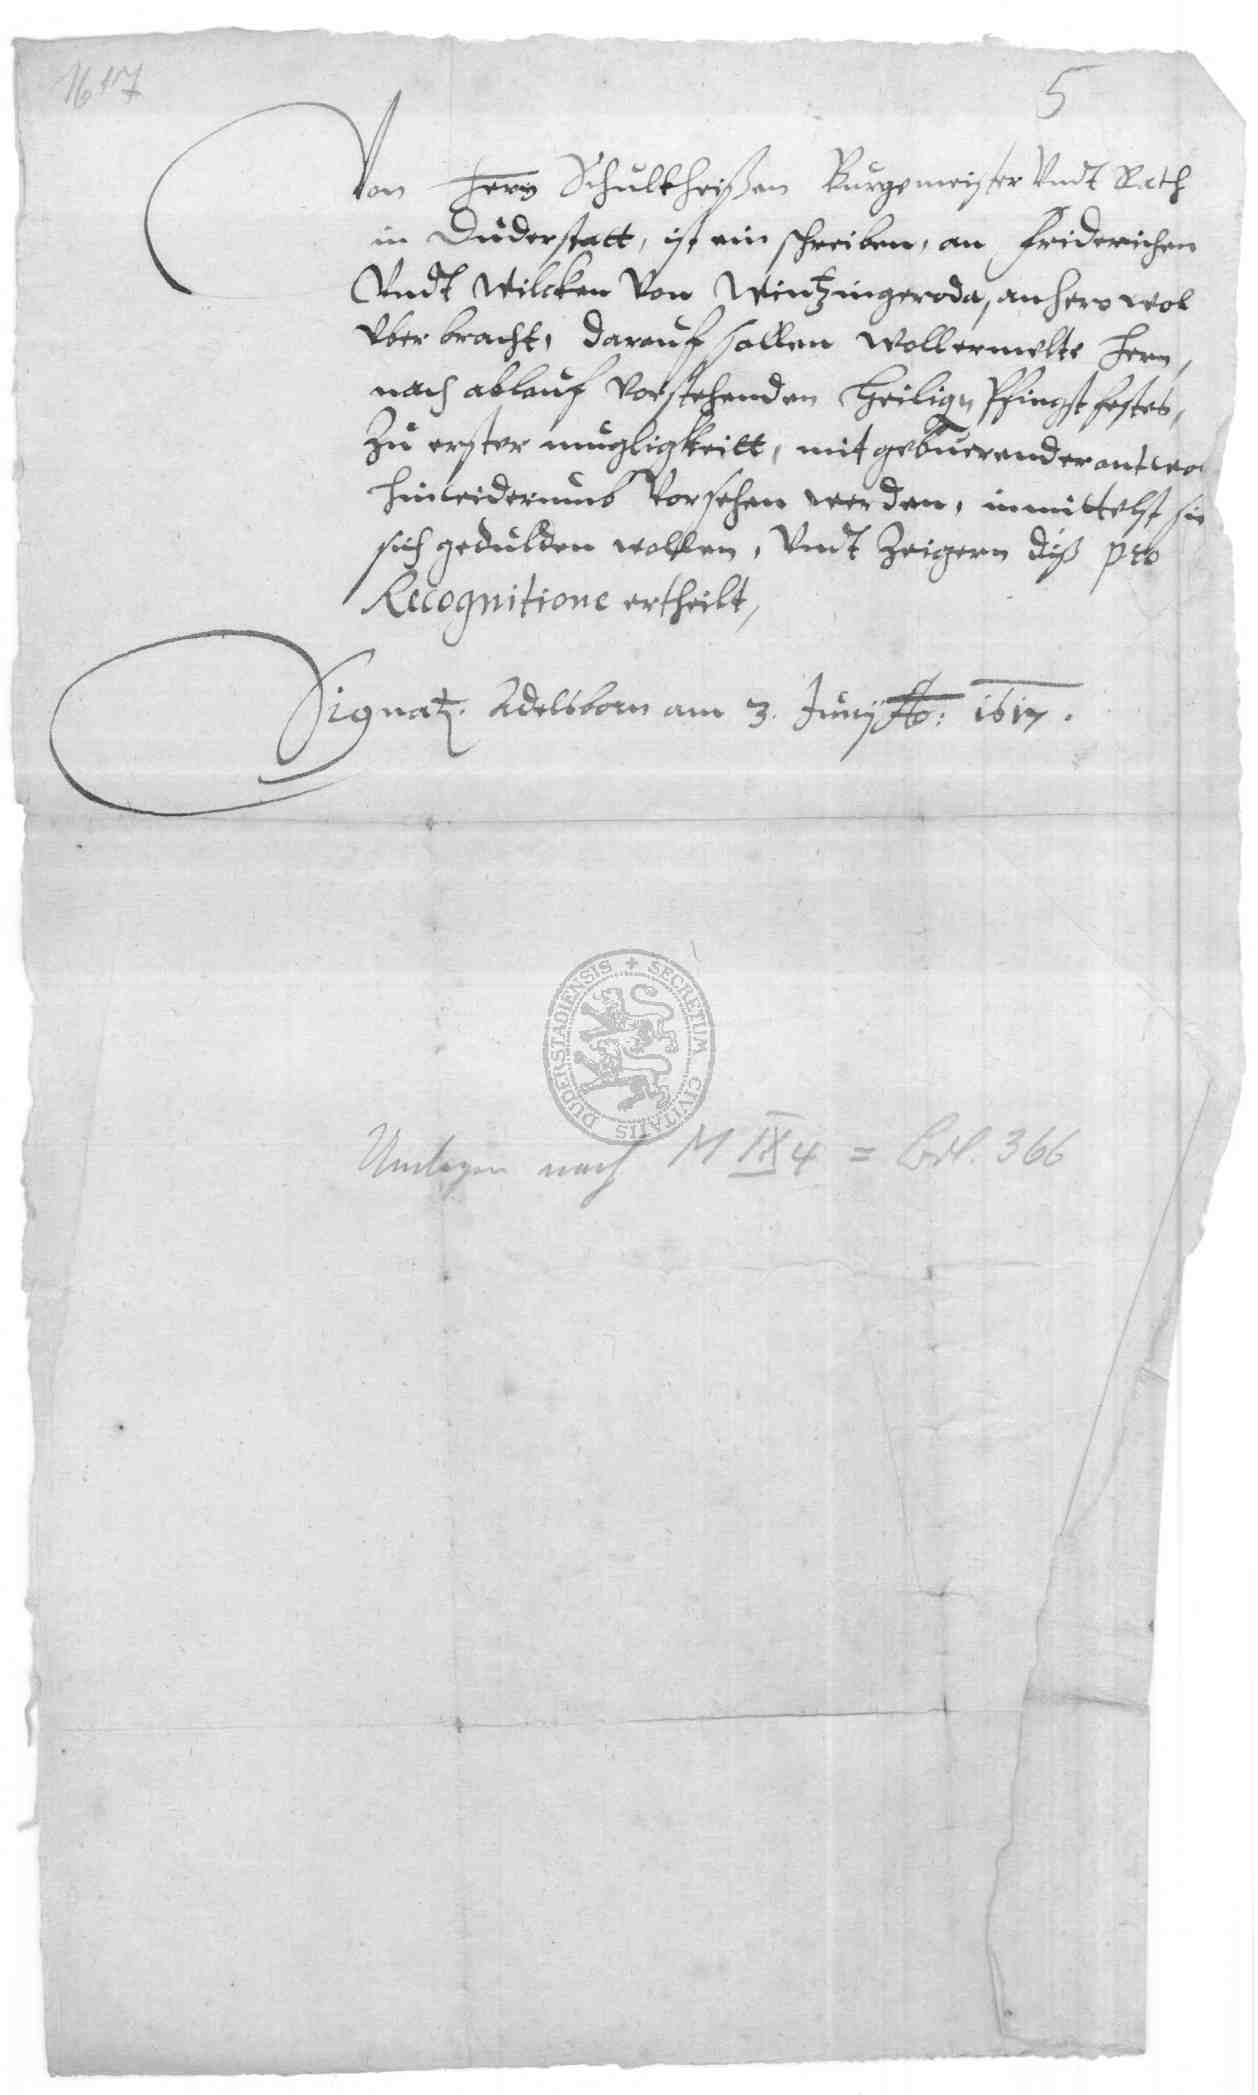 1617
5
Von Hern Schultheißen Burgemeister Vndt Rath
in Duderstatt, ist ein schreiben, an Friderichen
Vndt Wilcken Von Wintzingeroda, anhero wol
vber bracht, darauf sollen wollermelte Hern,
nach ablauf Vorstehenden Heilign Pfingst festes,
Zu erster mugligkeitt, mit gebuerender antwo
hinwiderumb Vorsehen werden, inmittelst sie
sich gedulden wollen, Vndt Zeigern diß pro
Recognitione ertheilt,
Signat. Adelsborn am 3. Junij Ao: 1617.
SECRETUM CIVITATIS DUDERSTADIENSIS
Umlegen nach M IX 4 = Bd. 366